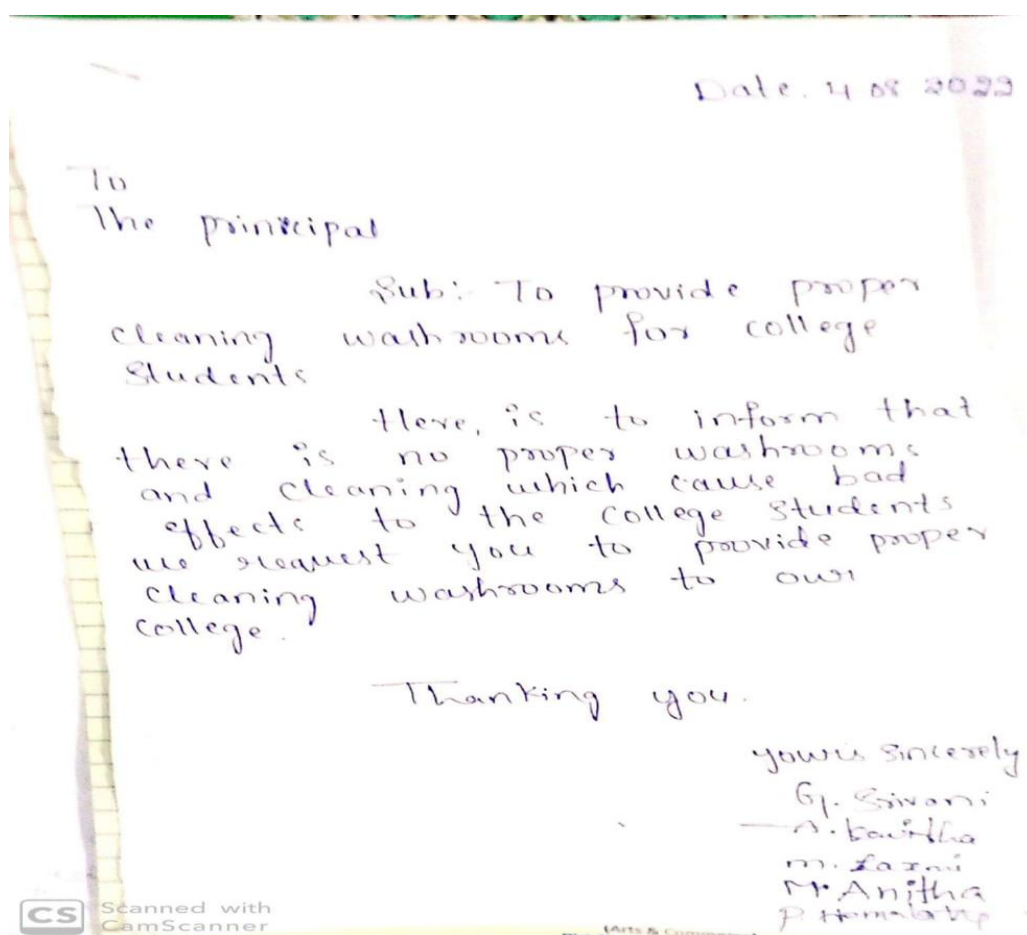 Date. 4 08 2022
To
The prinicipal
Sub: To provide proper
cleaning washrooms for college
Students
Here, is to inform that
there is no proper washrooms
and cleaning which cause bad
effects to the college students
we request you to provide proper
cleaning washrooms to our
college.
Thanking you.
yours sincerely
G. Srivani
A. Kavitha
m. Laxmi
M. Anitha
P.
CS Scanned with
CamScanner
(Arts & Commerce)